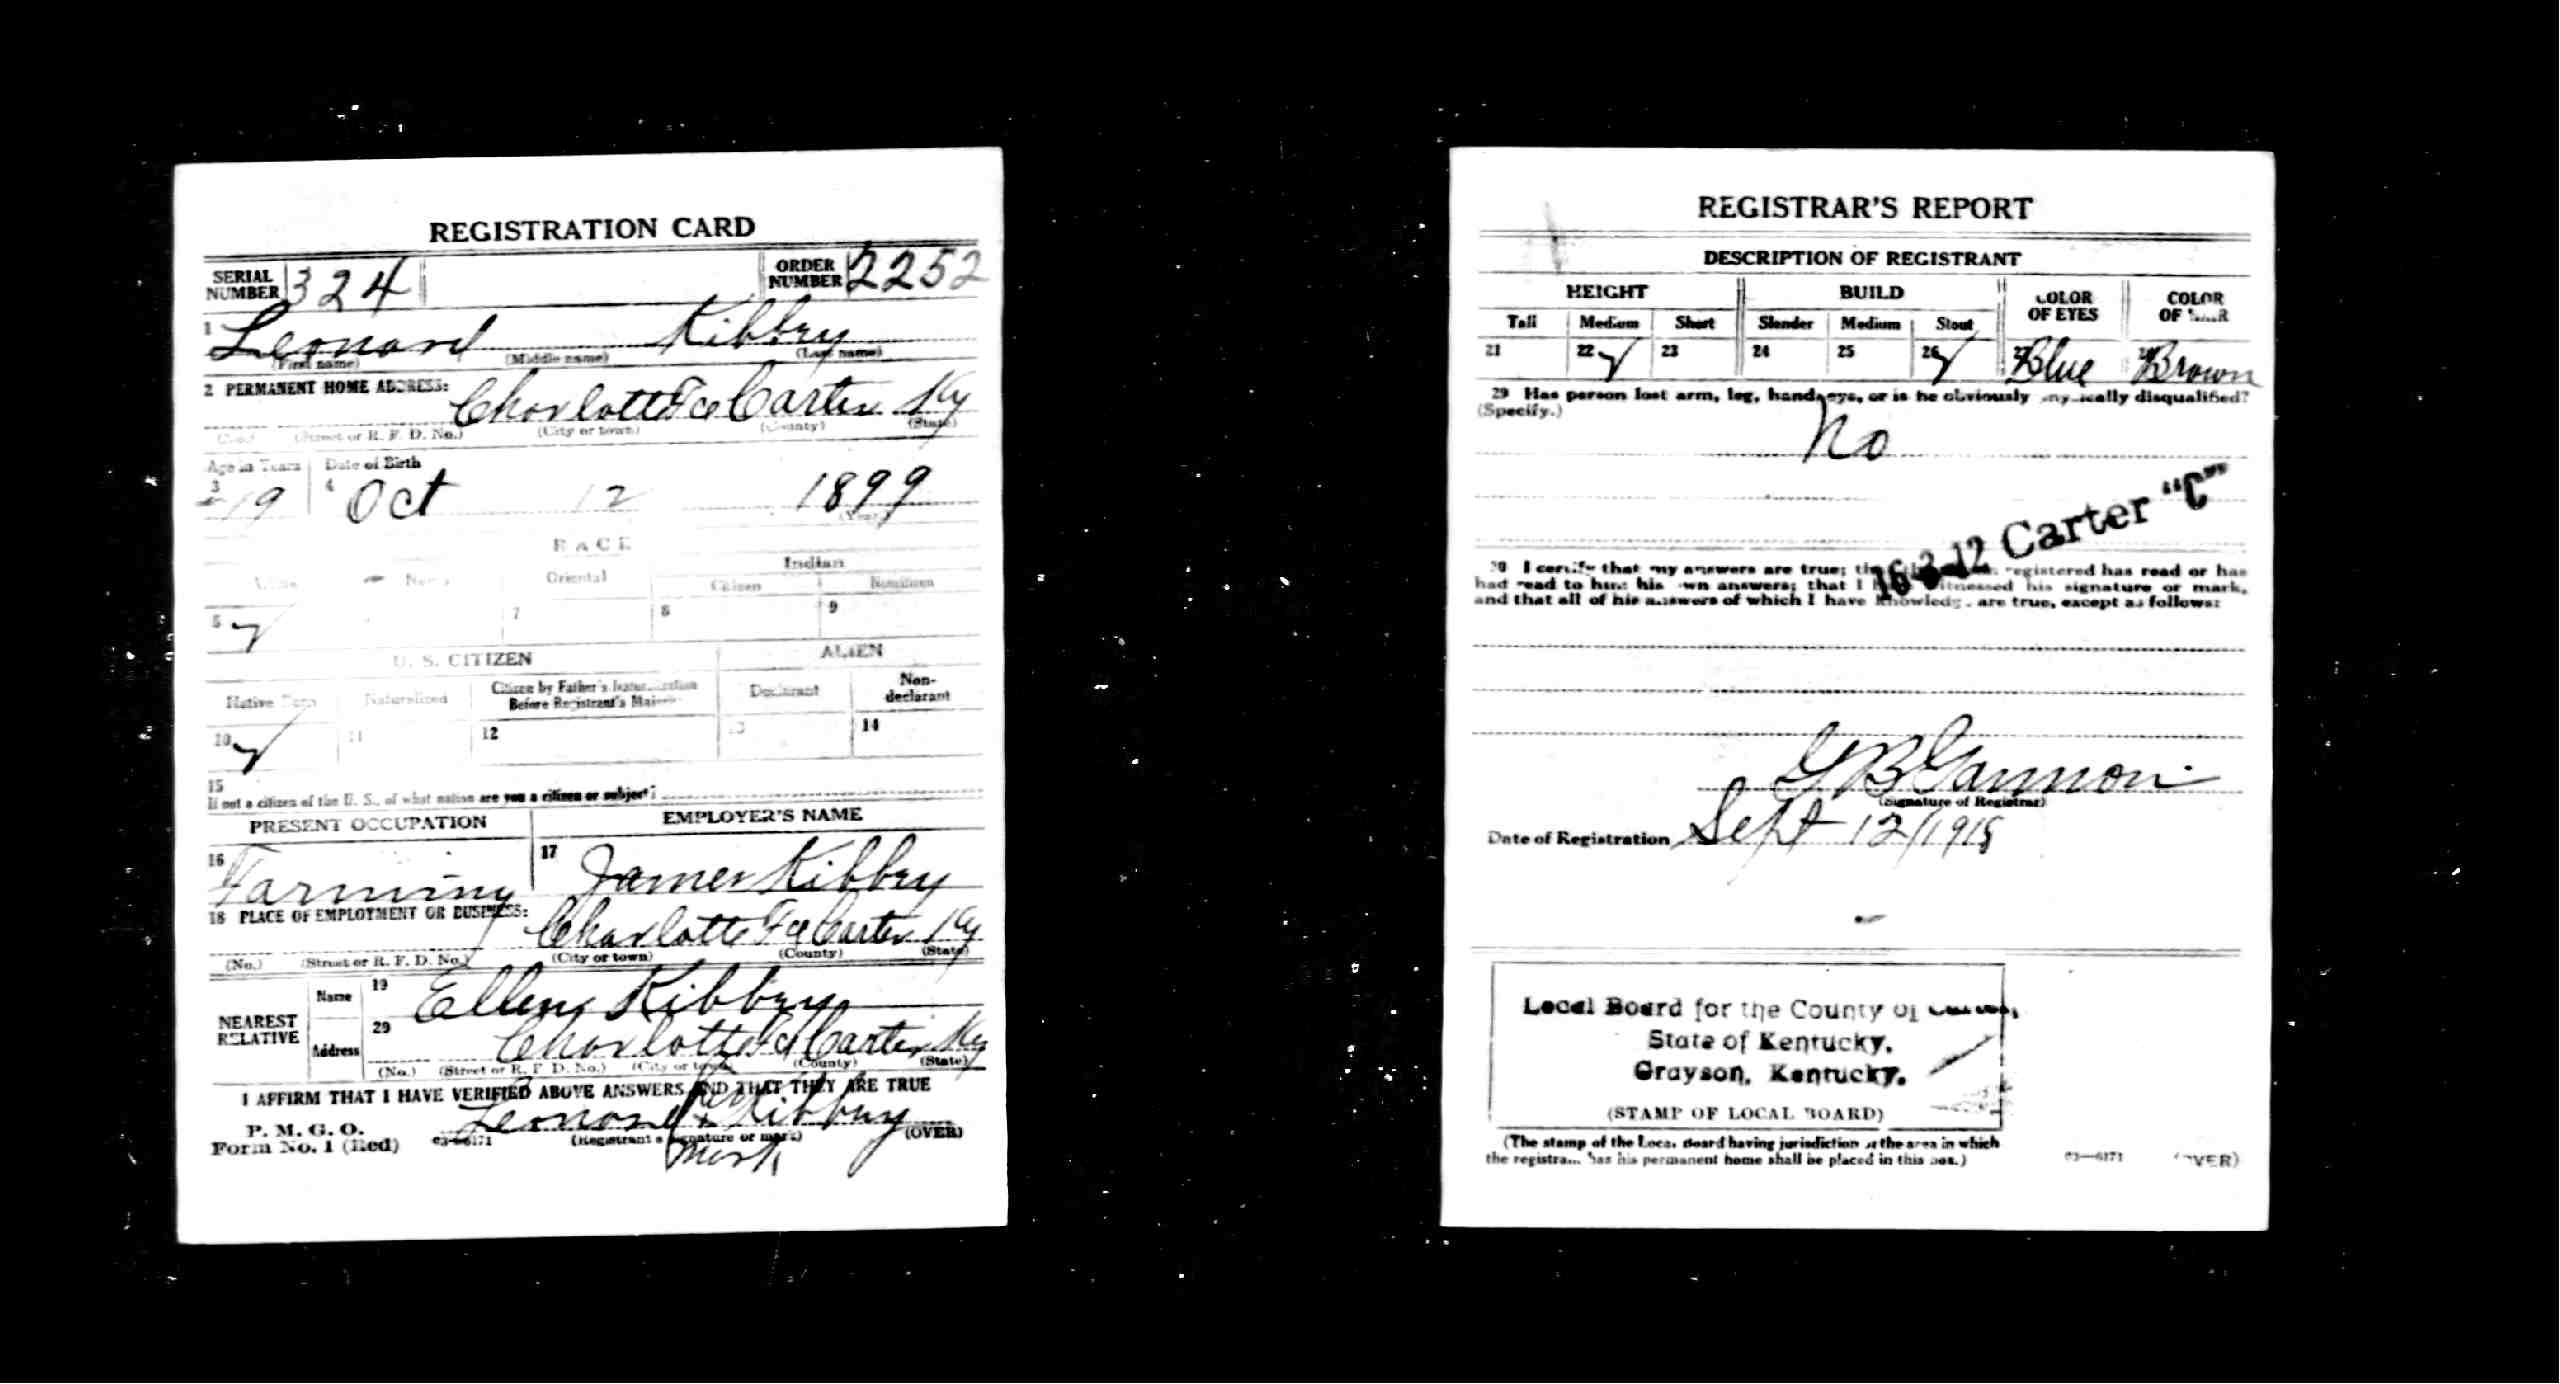 REGISTRATION CARD
SERIAL NUMBER 324 ORDER NUMBER 2252
1 Leonard Kibbry
(First name) (Middle name) (Last name)
2 PERMANENT HOME ADDRESS: Charlotte Fce Carter Ky
(No.) (Street or R. F. D. No.) (City or town) (County) (State)
Age in Years Date of Birth
3 19 4 Oct 12 1899
(Year)
RACE
White Negro Oriental Indian
Citizen Noncitizen
5 ✓ 7 8 9
U. S. CITIZEN ALIEN
Native Born Naturalized Citizen by Father's Naturalization Before Registrant's Majority Declarant Non-declarant
10 ✓ 11 12 13 14
15
If not a citizen of the U. S., of what nation are you a citizen or subject?
PRESENT OCCUPATION EMPLOYER'S NAME
16 Farming 17 James Kibbry
18 PLACE OF EMPLOYMENT OR BUSINESS: Charlotte Fce Carter Ky
(No.) (Street or R. F. D. No.) (City or town) (County) (State)
NEAREST RELATIVE
Name 19 Ellen Kibbry
Address 20 Charlotte Fce Carter Ky
(No.) (Street or R. F. D. No.) (City or town) (County) (State)
I AFFIRM THAT I HAVE VERIFIED ABOVE ANSWERS AND THAT THEY ARE TRUE
P. M. G. O.
Form No. 1 (Red) 03—6171 Leonard his x mark Kibbry
(Registrant's signature or mark) (OVER)
REGISTRAR'S REPORT
DESCRIPTION OF REGISTRANT
HEIGHT BUILD COLOR OF EYES COLOR OF HAIR
Tall Medium Short Slender Medium Stout
21 22 ✓ 23 24 25 26 ✓ 27 Blue 28 Brown
29 Has person lost arm, leg, hand, eye, or is he obviously physically disqualified?
(Specify.)
No
16-3-12 Carter "C"
30 I certify that my answers are true; that the person registered has read or has
had read to him his own answers; that I have witnessed his signature or mark,
and that all of his answers of which I have knowledge are true, except as follows:
G B Gannon
(Signature of Registrar)
Date of Registration Sept 12/1918
Local Board for the County of Carter,
State of Kentucky.
Grayson, Kentucky.
(STAMP OF LOCAL BOARD)
(The stamp of the Local Board having jurisdiction of the area in which
the registrant has his permanent home shall be placed in this box.)
03—6171 (OVER)